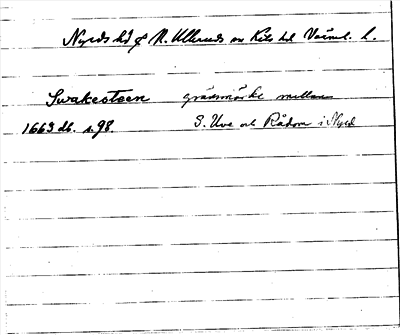 Nyeds hd & N. Ulleruds av Kils hd Värml. l.
Swakesteen gränsmärke mellan
1663 db. s. 98. S. Uve och Rådom i Nyed